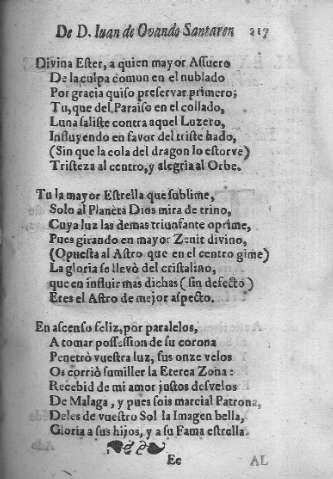 De D. Iuan de Ovando Santaren 217
Divina Ester, a quien mayor Assuero
De la culpa comun en el nublado
Por gracia quiso preservar primero;
Tu, que del Paraiso en el collado,
Luna saliste contra aquel Luzero,
Influyendo en favor del triste hado,
(Sin que la cola del dragon lo estorve)
Tristeza al centro, y alegria al Orbe.
Tu la mayor Estrella que sublime,
Solo al Planeta Dios mira de trino,
Cuya luz las demas triunfante oprime,
Pues girando en mayor Zenit divino,
(Opuesta al Astro que en el centro gime)
La gloria se llevò del cristalino,
que en influir mas dichas (sin defecto)
Eres el Astro de mejor aspecto.
En ascenso feliz, por paralelos,
A tomar possession de su corona
Penetrò vuestra luz, sus onze velos
Os corriò sumiller la Eterea Zona:
Recebid de mi amor justos desvelos
De Malaga, y pues sois marcial Patrona,
Deles de vuestro Sol la Imagen bella,
Gloria a sus hijos, y a su Fama estrella.
Ee AL